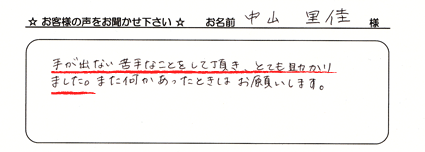 ☆ お客様の声をお聞かせ下さい ☆ お名前 中山 里佳 様
手が出ない苦手なことをして頂き、とても助かり
ました。また何かあったときはお願いします。